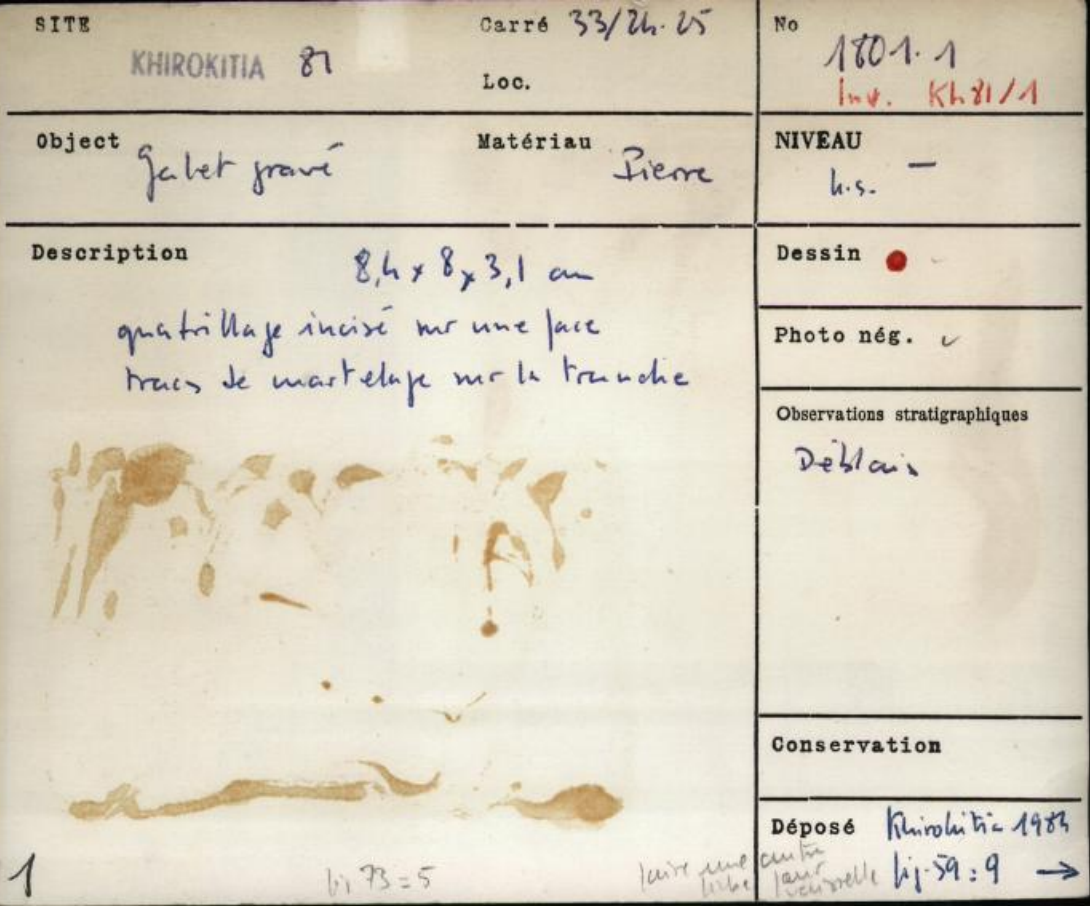 SITE
KHIROKITIA 81
Carré 33/24.25
Loc.
No
1801.1
Inv. Kh 81/1
Object Galet gravé
Matériau Pierre
NIVEAU
h.s. —
Description
8,4 x 8 x 3,1 cm
quatrillage incisé sur une face
traces de martelage sur la tranche
Dessin
Photo nég.
Observations stratigraphiques
Déblais
Conservation
Déposé Khirokitia 1984
fig. 59:9 →
1
73 = 5
faire une autre
pour